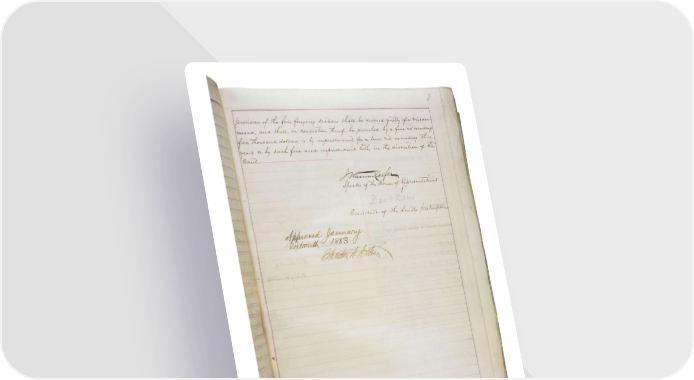 provision of the four foregoing sections shall be deemed guilty of a misde-
meanor, and shall, on conviction thereof, be punished by a fine not exceeding
five thousand dollars, or by imprisonment for a term not exceeding three
years, or by such fine and imprisonment both, in the discretion of the
court.
J Warren Keifer
Speaker of the House of Representatives
David Davis
President of the Senate
Approved January
Sixteenth 1883
Chester A Arthur